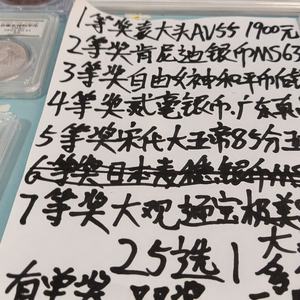 1等奖袁大头AV55 1900元
2等奖肯尼迪银币MS63
3等奖自由女神和平币
4等奖贰毫银币.广东
5等奖宋代大五帝85分
6等奖日本 银币MS
7等奖大观通宝极美
25选1
大
有单奖